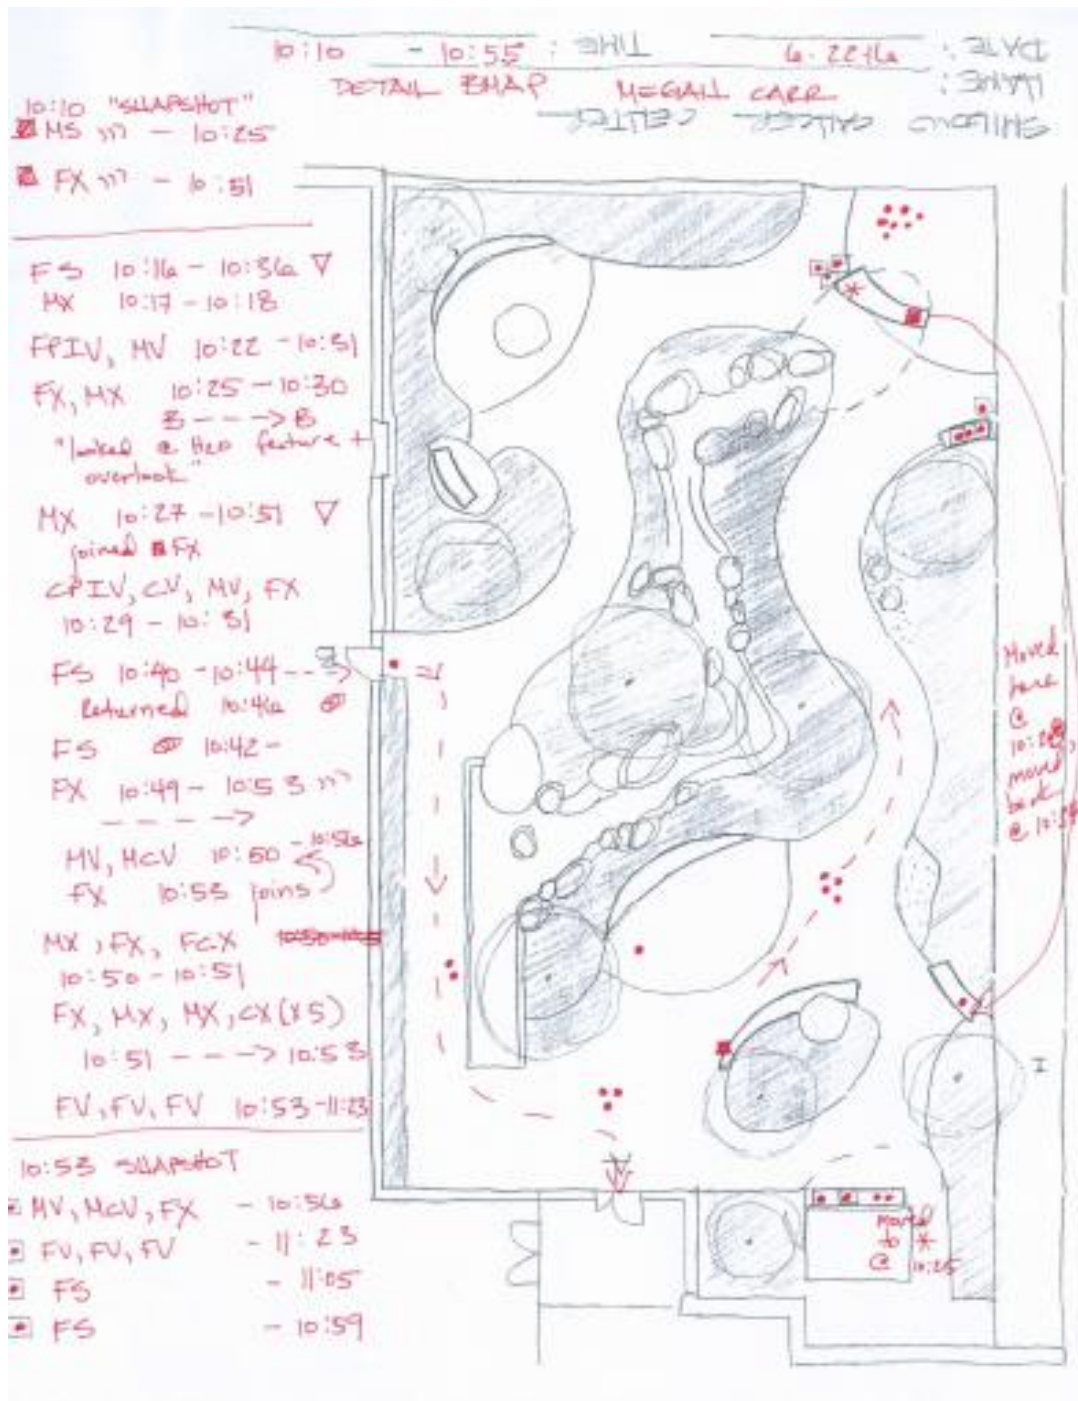 10:10 - 10:55 TIME: 6.22.16 DATE:
DETAIL BMAP MEGAN CARR NAME:
10:10 "SNAPSHOT"
MS ))) - 10:25
FX ))) - 10:51
FS 10:16 - 10:36 ▽
MX 10:17 - 10:18
FPIV, MV 10:22 - 10:31
FX, MX 10:25 - 10:30
B - - - -> B
"looked @ H2O feature +
overlook"
MX 10:27 - 10:51 ▽
joined ■ FX
CPIV, CV, MV, FX
10:29 - 10:31
FS 10:40 - 10:44 - - ->
Returned 10:46
FS 10:42 -
FX 10:49 - 10:53 )))
- - - - ->
MV, MCV 10:50 - 10:56
FX 10:53 joins
MX, FX, FCX
10:50 - 10:51
FX, MX, MX, CX (x5)
10:51 - - - -> 10:53
FV, FV, FV 10:53 - 11:23
10:53 SNAPSHOT
MV, MCV, FX - 10:56
FV, FV, FV - 11:23
FS - 11:05
FS - 10:59
Moved
here
@
moved
back
@
Moved
to *
@ 10:25
I